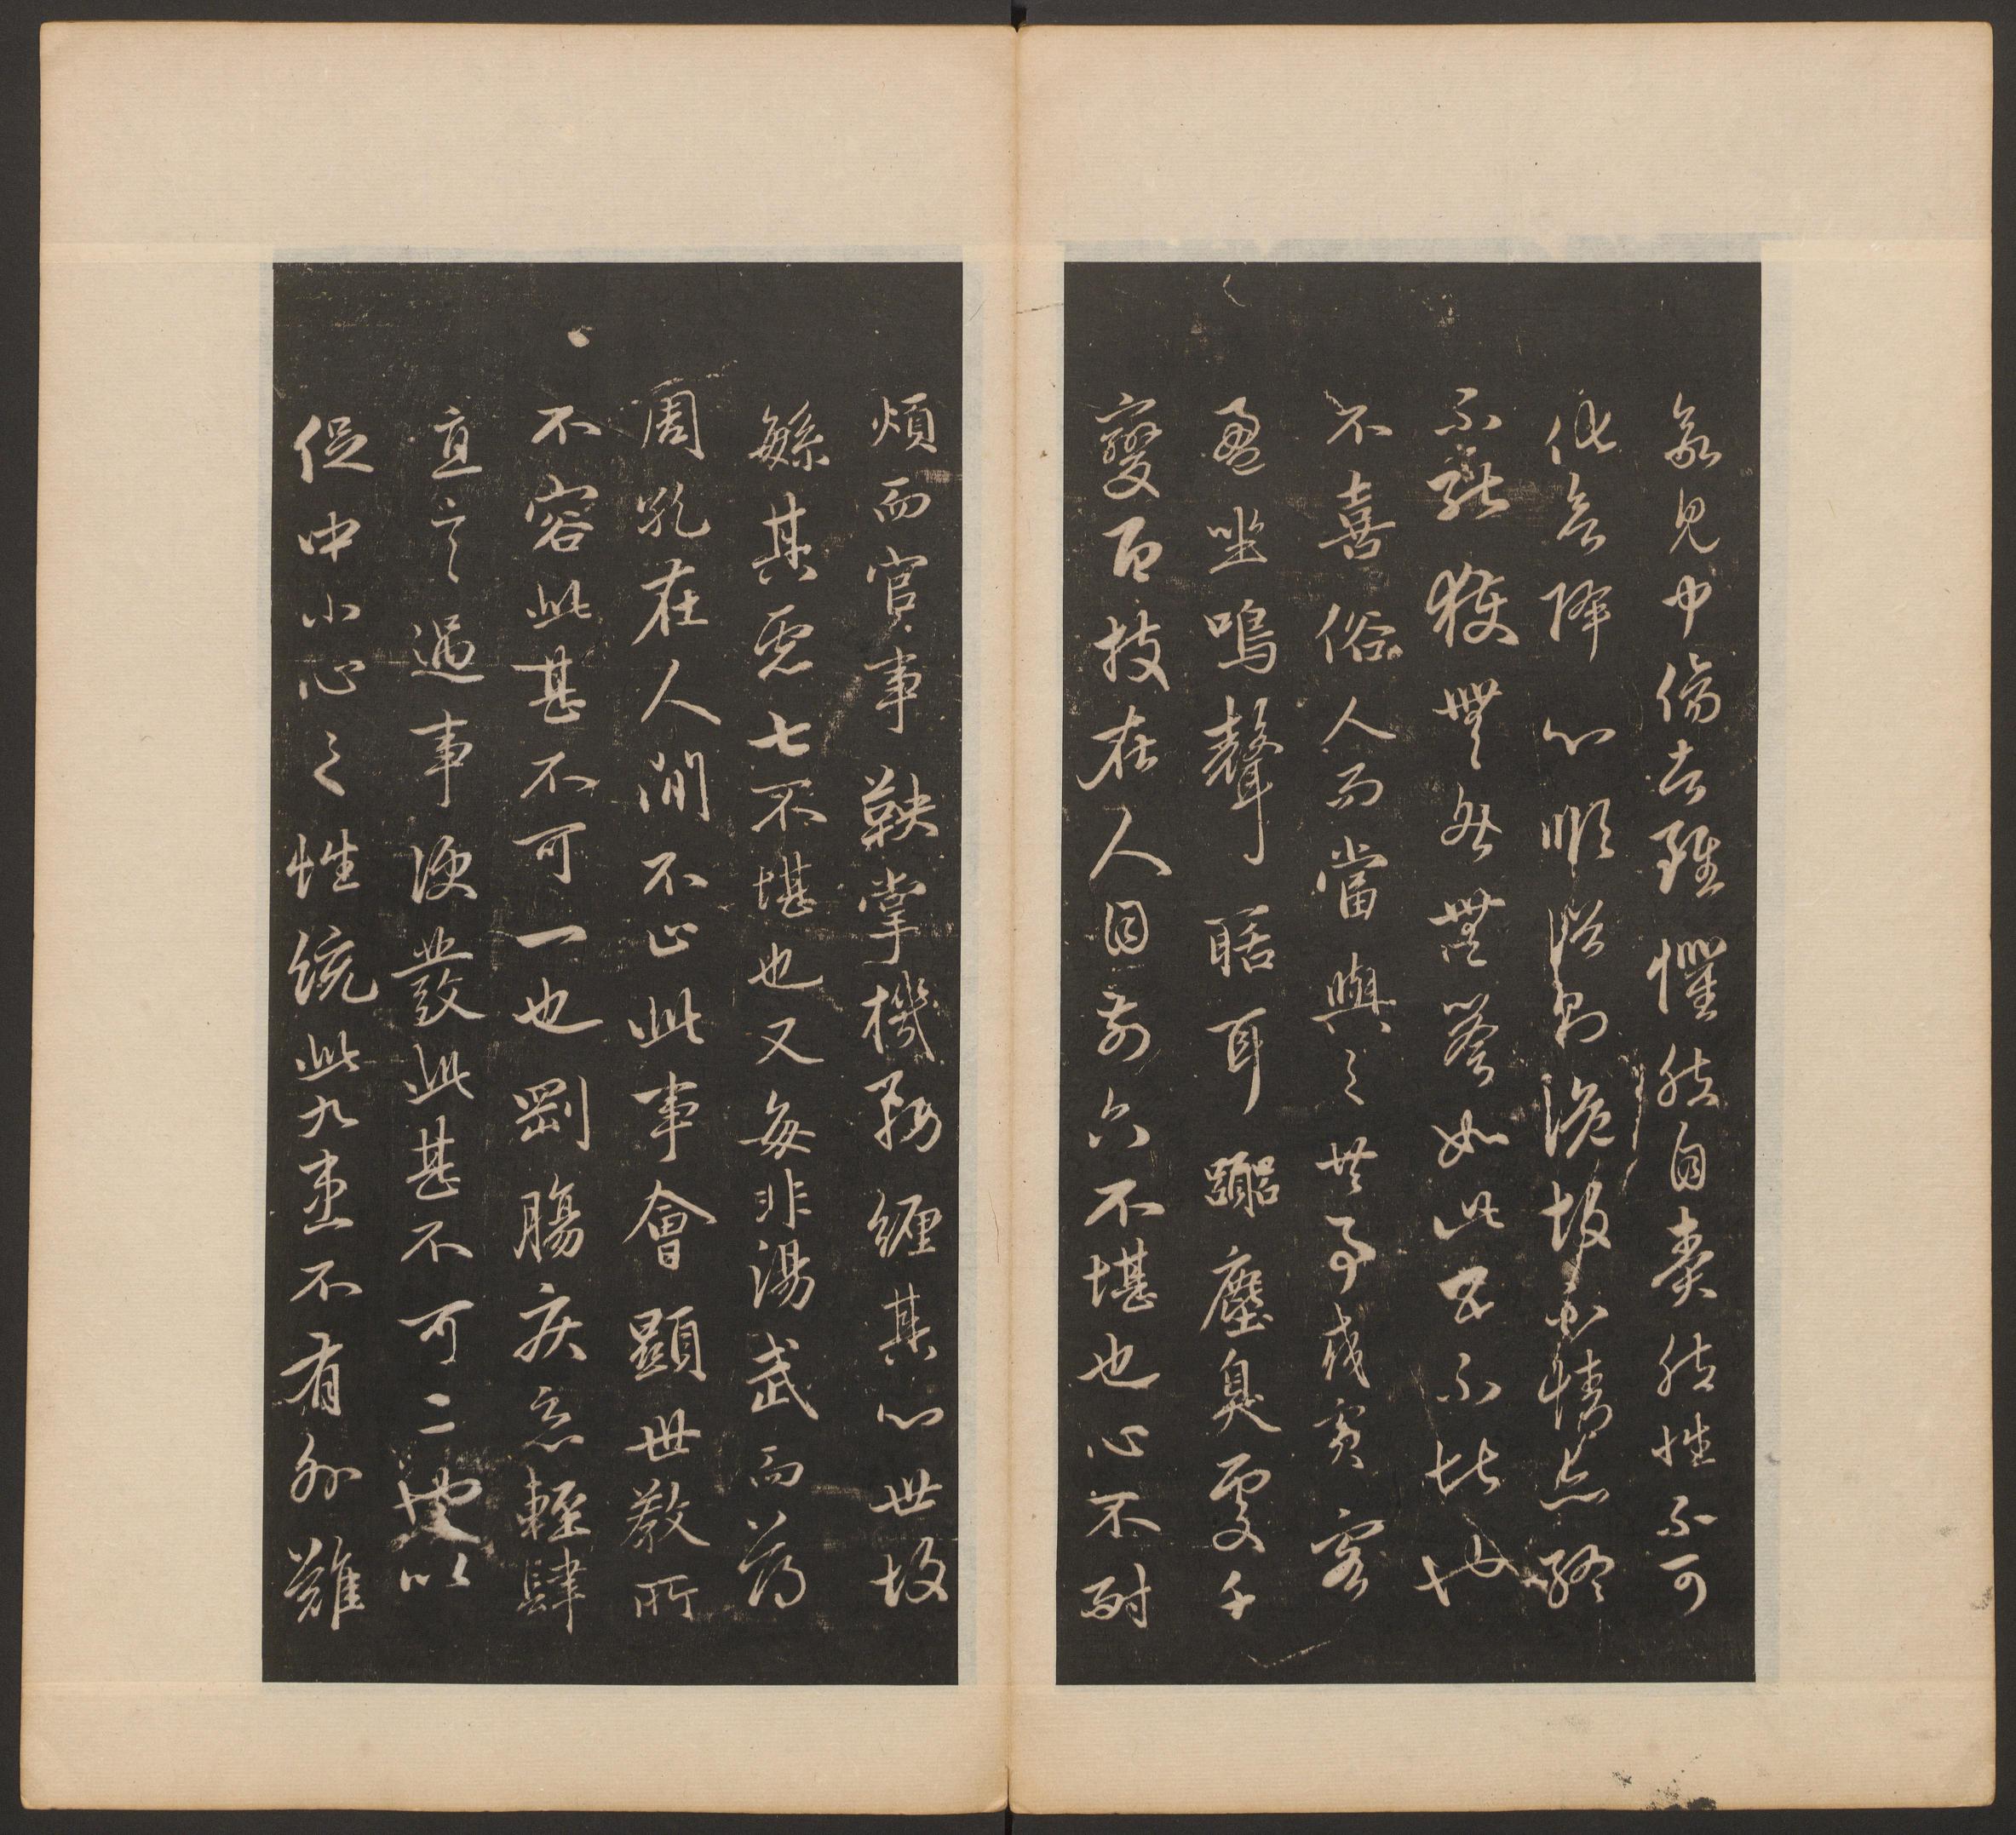 欲見中傷者雖懼然自責然性不可
化欲降心順俗則詭故不情亦終
不能獲無咎無譽如此五不堪也
不喜俗人而當與之共事或賓客
盈坐鳴聲聒耳囂塵臭處千
變百技在人目前六不堪也心不耐
煩而官事鞅掌機務纏其心世故
繁其慮七不堪也又每非湯武而薄
周孔在人間不止此事會顯世教所
不容此甚不可一也剛腸疾惡輕肆
直言遇事便發此甚不可二也以
促中小心之性統此九患不有外難